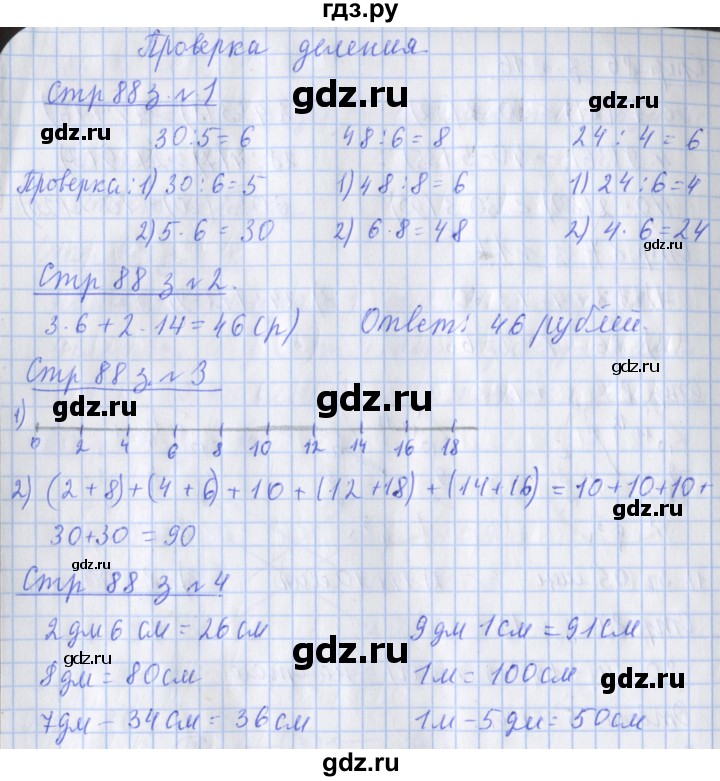 гдз.ру
Проверка деления
Стр 88 з. №1
gdz.ru
gdz.ru
30:5=6 48:6=8 24:4=6
Проверка: 1) 30:6=5 1) 48:8=6 1) 24:6=4
2) 5·6=30 2) 6·8=48 2) 4·6=24
gdz.ru
Стр 88 з №2.
gdz.ru
3·6+2·14=46(р) Ответ: 46 рублей.
Стр 88 з. №3
gdz.ru
gdz.ru
1)
0 2 4 6 8 10 12 14 16 18
gdz.ru
2) (2+8)+(4+6)+10+(12+18)+(14+16)=10+10+10+
gdz.ru
30+30=90
gdz.ru
Стр 88 з №4
2дм 6 см = 26см 9дм 1см = 91см
gdz.ru
gdz.ru
8дм = 80см 1м = 100см
gdz.ru
7дм – 34см = 36см 1м – 5дм = 50см
gdz.ru